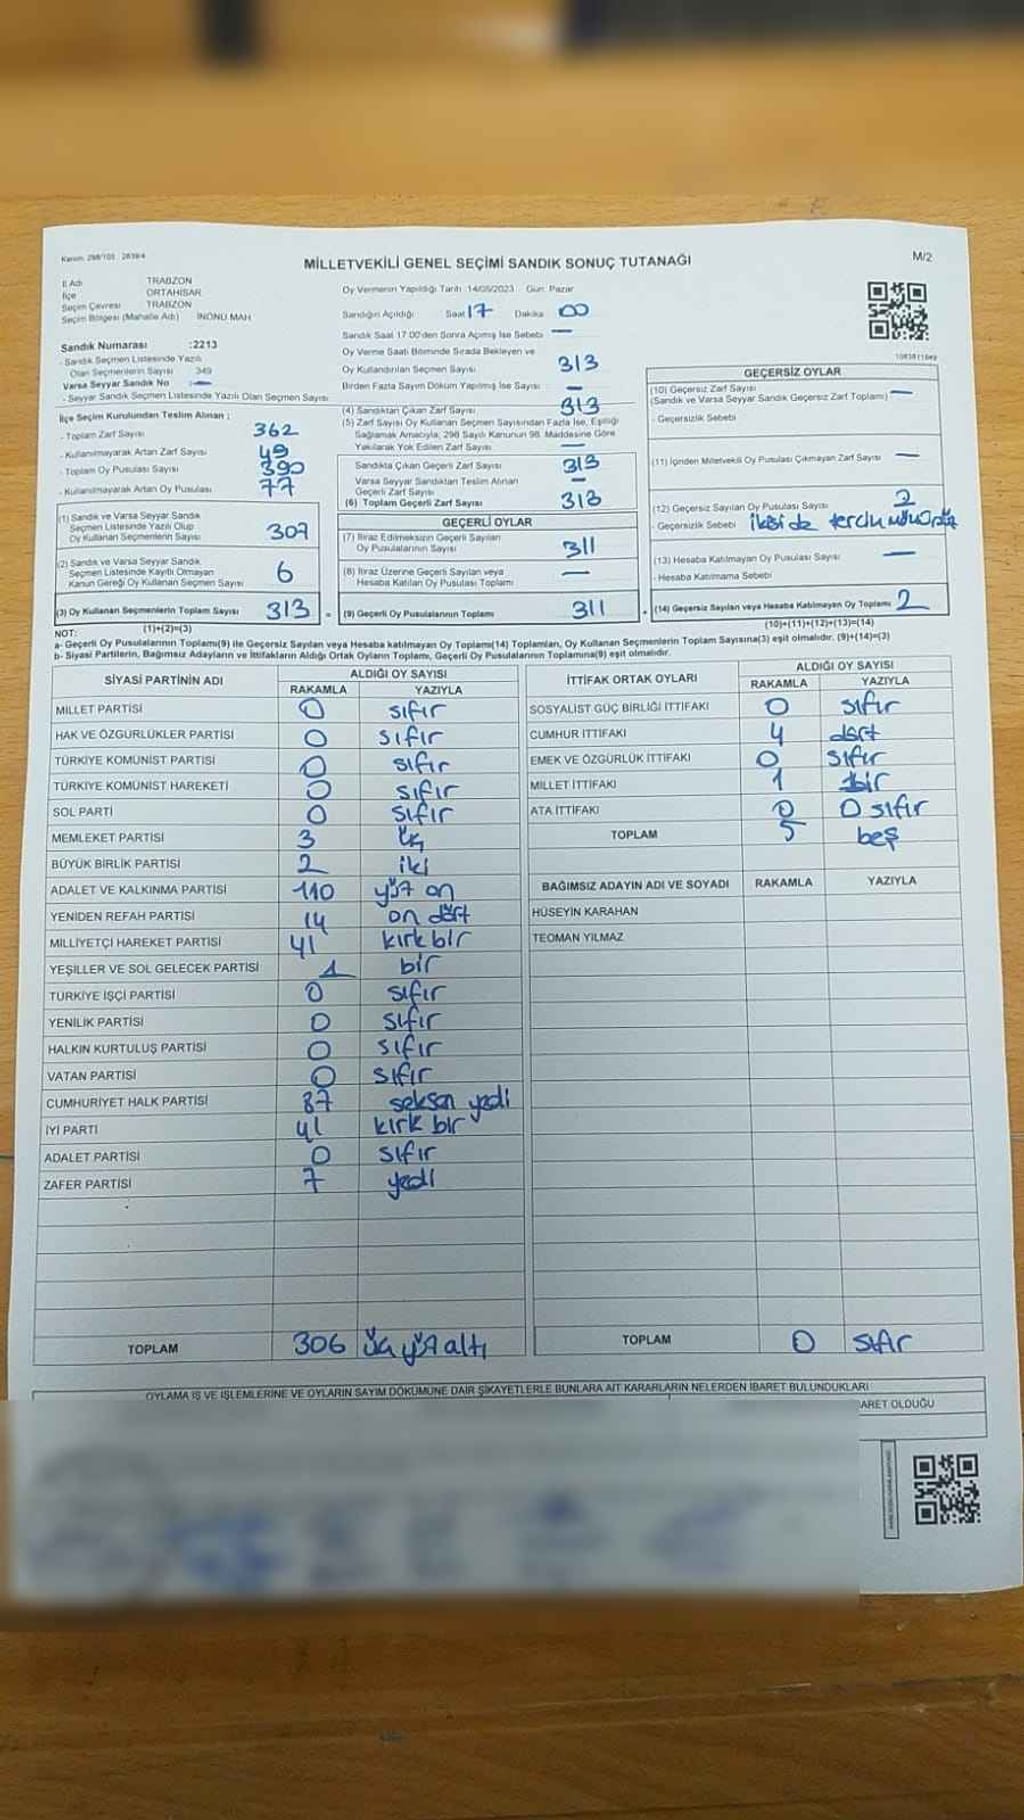 Kanun: 298/105
MİLLETVEKİLİ GENEL SEÇİMİ SANDIK SONUÇ TUTANAĞI
M/2
İl Adı TRABZON
İlçe ORTAHİSAR
Seçim Çevresi TRABZON
Seçim Bölgesi (Mahalle Adı) İNÖNÜ MAH
Sandık Numarası :2213
- Sandık Seçmen Listesinde Yazılı
Olan Seçmenlerin Sayısı 349
Varsa Seyyar Sandık No : —
- Seyyar Sandık Seçmen Listesinde Yazılı Olan Seçmen Sayısı
İlçe Seçim Kurulundan Teslim Alınan :
- Toplam Zarf Sayısı 362
- Kullanılmayarak Artan Zarf Sayısı 49
- Toplam Oy Pusulası Sayısı 390
- Kullanılmayarak Artan Oy Pusulası 77
(1) Sandık ve Varsa Seyyar Sandık
Seçmen Listesinde Yazılı Olup
Oy Kullanan Seçmenlerin Sayısı 307
(2) Sandık ve Varsa Seyyar Sandık
Seçmen Listesinde Kayıtlı Olmayan
Kanun Gereği Oy Kullanan Seçmen Sayısı 6
(3) Oy Kullanan Seçmenlerin Toplam Sayısı 313 =
(1)+(2)=(3)
Oy Vermenin Yapıldığı Tarih :14/05/2023 Gün: Pazar
Sandığın Açıldığı Saat 17 Dakika 00
Sandık Saat 17.00'den Sonra Açılmış İse Sebebi —
Oy Verme Saati Bitiminde Sırada Bekleyen ve
Oy Kullandırılan Seçmen Sayısı 313
Birden Fazla Sayım Döküm Yapılmış İse Sayısı : —
(4) Sandıktan Çıkan Zarf Sayısı 313
(5) Zarf Sayısı Oy Kullanan Seçmen Sayısından Fazla İse, Eşitliği
Sağlamak Amacıyla, 298 Sayılı Kanunun 98. Maddesine Göre
Yakılarak Yok Edilen Zarf Sayısı —
Sandıkta Çıkan Geçerli Zarf Sayısı 313
Varsa Seyyar Sandıktan Teslim Alınan
Geçerli Zarf Sayısı —
(6) Toplam Geçerli Zarf Sayısı 313
GEÇERLİ OYLAR
(7) İtiraz Edilmeksizin Geçerli Sayılan
Oy Pusulalarının Sayısı 311
(8) İtiraz Üzerine Geçerli Sayılan veya
Hesaba Katılan Oy Pusulası Toplamı —
(9) Geçerli Oy Pusulalarının Toplamı 311 +
GEÇERSİZ OYLAR
(10) Geçersiz Zarf Sayısı
(Sandık ve Varsa Seyyar Sandık Geçersiz Zarf Toplamı) —
- Geçersizlik Sebebi
(11) İçinden Milletvekili Oy Pusulası Çıkmayan Zarf Sayısı —
(12) Geçersiz Sayılan Oy Pusulası Sayısı 2
- Geçersizlik Sebebi ikisi de
(13) Hesaba Katılmayan Oy Pusulası Sayısı —
- Hesaba Katılmama Sebebi
(14) Geçersiz Sayılan veya Hesaba Katılmayan Oy Toplamı 2
(10)+(11)+(12)+(13)=(14)
NOT:
a- Geçerli Oy Pusulalarının Toplamı(9) ile Geçersiz Sayılan veya Hesaba katılmayan Oy Toplamı(14) Toplamları, Oy Kullanan Seçmenlerin Toplam Sayısına(3) eşit olmalıdır. (9)+(14)=(3)
b- Siyasi Partilerin, Bağımsız Adayların ve İttifakların Aldığı Ortak Oyların Toplamı, Geçerli Oy Pusulalarının Toplamına(9) eşit olmalıdır.
SİYASİ PARTİNİN ADI ALDIĞI OY SAYISI
RAKAMLA YAZIYLA
MİLLET PARTİSİ 0 sıfır
HAK VE ÖZGÜRLÜKLER PARTİSİ 0 sıfır
TÜRKİYE KOMÜNİST PARTİSİ 0 sıfır
TÜRKİYE KOMÜNİST HAREKETİ 0 sıfır
SOL PARTİ 0 sıfır
MEMLEKET PARTİSİ 3 üç
BÜYÜK BİRLİK PARTİSİ 2 iki
ADALET VE KALKINMA PARTİSİ 110 yüz on
YENİDEN REFAH PARTİSİ 14 on dört
MİLLİYETÇİ HAREKET PARTİSİ 41 kırk bir
YEŞİLLER VE SOL GELECEK PARTİSİ 1 bir
TÜRKİYE İŞÇİ PARTİSİ 0 sıfır
YENİLİK PARTİSİ 0 sıfır
HALKIN KURTULUŞ PARTİSİ 0 sıfır
VATAN PARTİSİ 0 sıfır
CUMHURİYET HALK PARTİSİ 87 seksen yedi
İYİ PARTİ 41 kırk bir
ADALET PARTİSİ 0 sıfır
ZAFER PARTİSİ 7 yedi
TOPLAM 306 üç yüz altı
İTTİFAK ORTAK OYLARI ALDIĞI OY SAYISI
RAKAMLA YAZIYLA
SOSYALİST GÜÇ BİRLİĞİ İTTİFAKI 0 sıfır
CUMHUR İTTİFAKI 4 dört
EMEK VE ÖZGÜRLÜK İTTİFAKI 0 sıfır
MİLLET İTTİFAKI 1 bir
ATA İTTİFAKI 0 0 sıfır
TOPLAM 5 beş
BAĞIMSIZ ADAYIN ADI VE SOYADI RAKAMLA YAZIYLA
HÜSEYİN KARAHAN
TEOMAN YILMAZ
TOPLAM 0 sıfır
OYLAMA İŞ VE İŞLEMLERİNE VE OYLARIN SAYIM DÖKÜMÜNE DAİR ŞİKAYETLERLE BUNLARA AİT KARARLARIN NELERDEN İBARET BULUNDUKLARI
ARET OLDUĞU